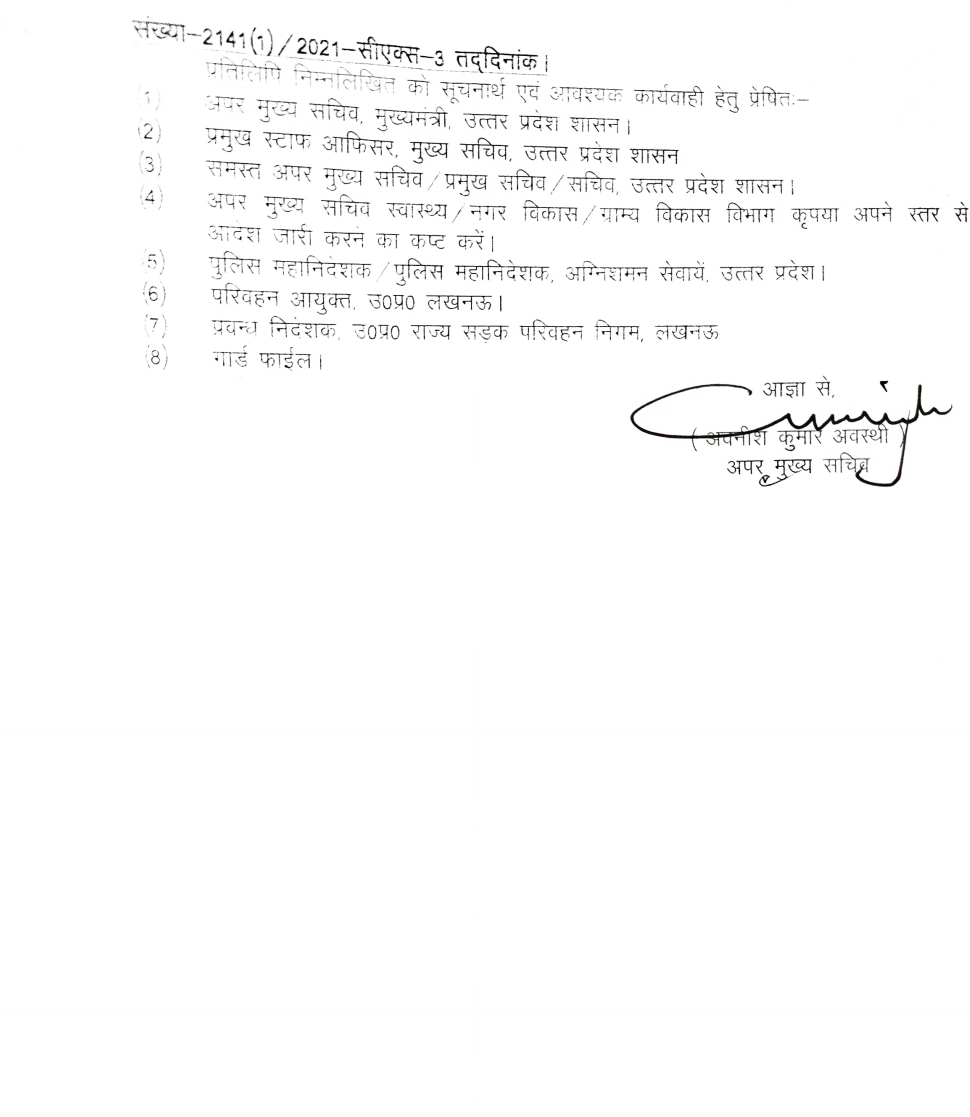 संख्या-2141(1)/2021-सीएक्स-3 तद्दिनांक।
प्रतिलिपि निम्नलिखित को सूचनार्थ एवं आवश्यक कार्यवाही हेतु प्रेषितः-
(1) अपर मुख्य सचिव, मुख्यमंत्री, उत्तर प्रदेश शासन।
(2) प्रमुख स्टाफ आफिसर, मुख्य सचिव, उत्तर प्रदेश शासन
(3) समस्त अपर मुख्य सचिव/प्रमुख सचिव/सचिव, उत्तर प्रदेश शासन।
(4) अपर मुख्य सचिव स्वास्थ्य/नगर विकास/ग्राम्य विकास विभाग कृपया अपने स्तर से
आदेश जारी करने का कष्ट करें।
(5) पुलिस महानिदेशक/पुलिस महानिदेशक, अग्निशमन सेवायें, उत्तर प्रदेश।
(6) परिवहन आयुक्त, उ0प्र0 लखनऊ।
(7) प्रबन्ध निदेशक, उ0प्र0 राज्य सड़क परिवहन निगम, लखनऊ
(8) गार्ड फाईल।
आज्ञा से,
( अवनीश कुमार अवस्थी )
अपर मुख्य सचिव